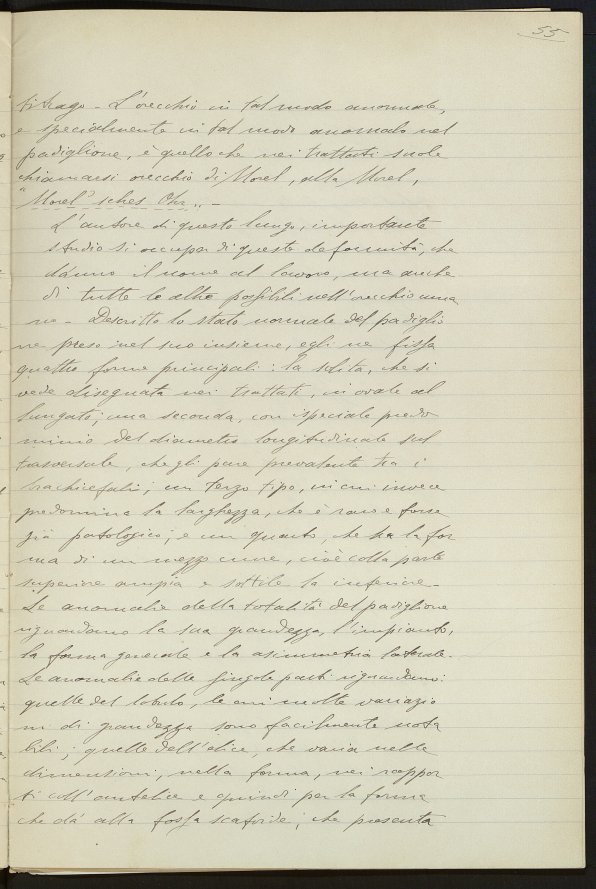 55
titrago - L'orecchio in tal modo anormale,
e specialmente in tal modo anomalo nel
padiglione, è quello che nei trattati suole
chiamarsi orecchio di Morel, alla Morel,
"Morel" sches Ohr„. -
L'autore di questo lungo, importante
studio si occupa di queste deformità, che
dànno il nome al lavoro, ma anche
di tutte le altre possibili nell'orecchio uma
no - Descritto lo stato normale del padiglio
ne preso nel suo insieme, egli ne fissa
quattro forme principali: la solita, che si
vede disegnata nei trattati, in ovale al
lungato; una seconda, con speciale predo
minio del diametro longitudinale sul
trasversale, che gli pare prevalente tra i
brachicefali; un terzo tipo, in cui invece
predomina la larghezza, che è raro e forse
già patologico; e un quarto, che ha la for
ma di un mezzo cuore, cioè colla parte
superiore ampia e sottile la inferiore -
Le anomalie della totalità del padiglione
riguardano la sua grandezza, l'impianto,
la forma generale e la asimmetria laterale -
Le anomalie delle singole parti riguardano:
quelle del lobulo, le cui molte variazio
ni di grandezza sono facilmente nota
bili; quelle dell'elice, che varia nelle
dimensioni, nella forma, nei rappor
ti coll'antelice e quindi per la forma
che dà alla fossa scafoide; che presenta